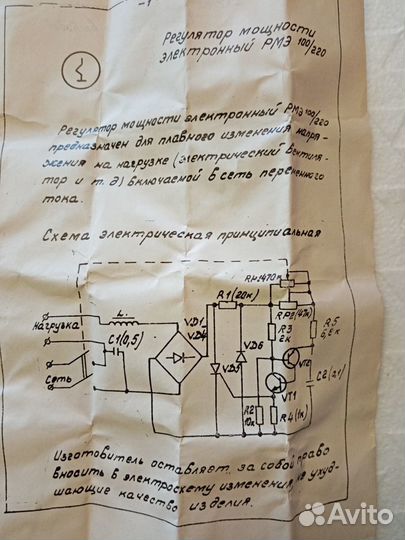 -1
Регулятор мощности
электронный РМЭ 100/220
Регулятор мощности электронный РМЭ 100/220
предназначен для плавного изменения напря-
жения на нагрузке (электрический вентиля-
тор и т. д) включаемой в сеть переменного
тока.
Схема электрическая принципиальная
R1(20к)
L.
Нагрузка
C1(0,5)
VD1-
VD4
VD6
R3
2к
R5
VT2
VD5
Сеть
VT1
R2
10к
R4(1к)
Изготовитель оставляет за собой право
вносить в электросхему изменения, не ухуд-
шающие качество изделия.
Avito